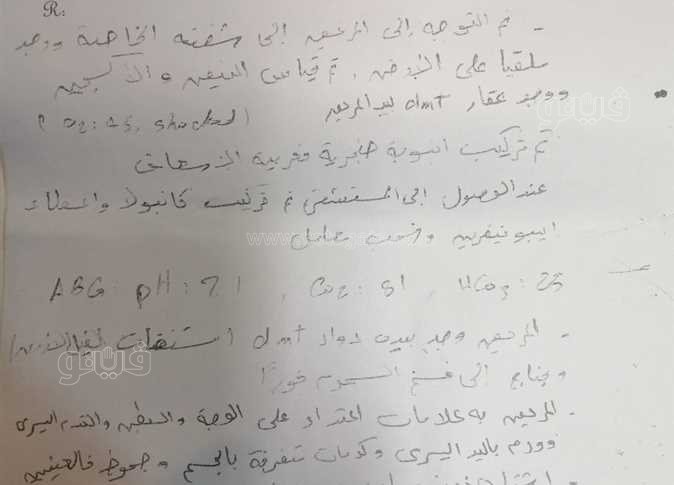 R:
- تم التوجه إلى المريض إلى شقته الخاصة ووجد
ملقيا على الأرض، تم قياس النبض والأكسجين
ووجد عقار dmt بيد المريض (O2: 45, shocked)
تم تركيب انبوبة حنجرية الاسعاف
عند الوصول إلى المستشفى تم تركيب كانيولا واعطاء
ايبونيفرين وسحب
ABG: pH: 7.1 , Co2: 51 , Hco3: 23
- المريض وجد بيده دواء dmt (
ويحتاج إلى السموم فورًا
- المريض به علامات اعتداء على الوجه والبطن والقدم اليسرى
وورم باليد اليسرى وكدمات متفرقة بالجسم و جحوظ فالعينين
فيتو
فيتو